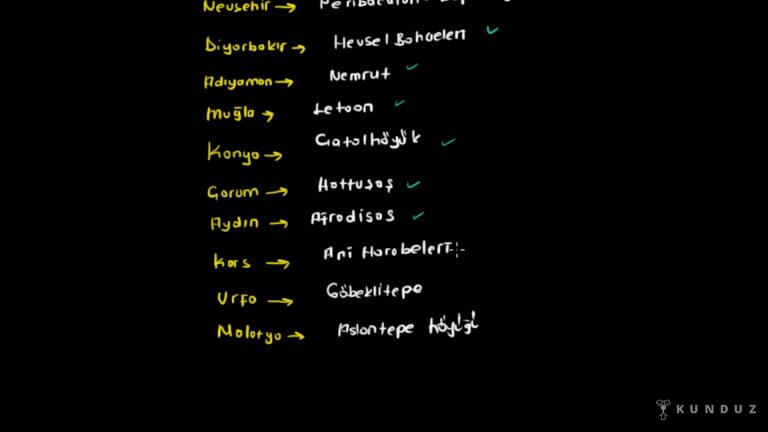 Nevşehir →
Diyarbakır → Hevsel Bahçeleri ✓
Adıyaman → Nemrut ✓
Muğla → Letoon ✓
Konya → Çatalhöyük ✓
Çorum → Hattuşaş ✓
Aydın → Afrodisas ✓
Kars → Ani Harabeleri
Urfa → Göbeklitepe
Malatya → Aslantepe höyüğü
KUNDUZ